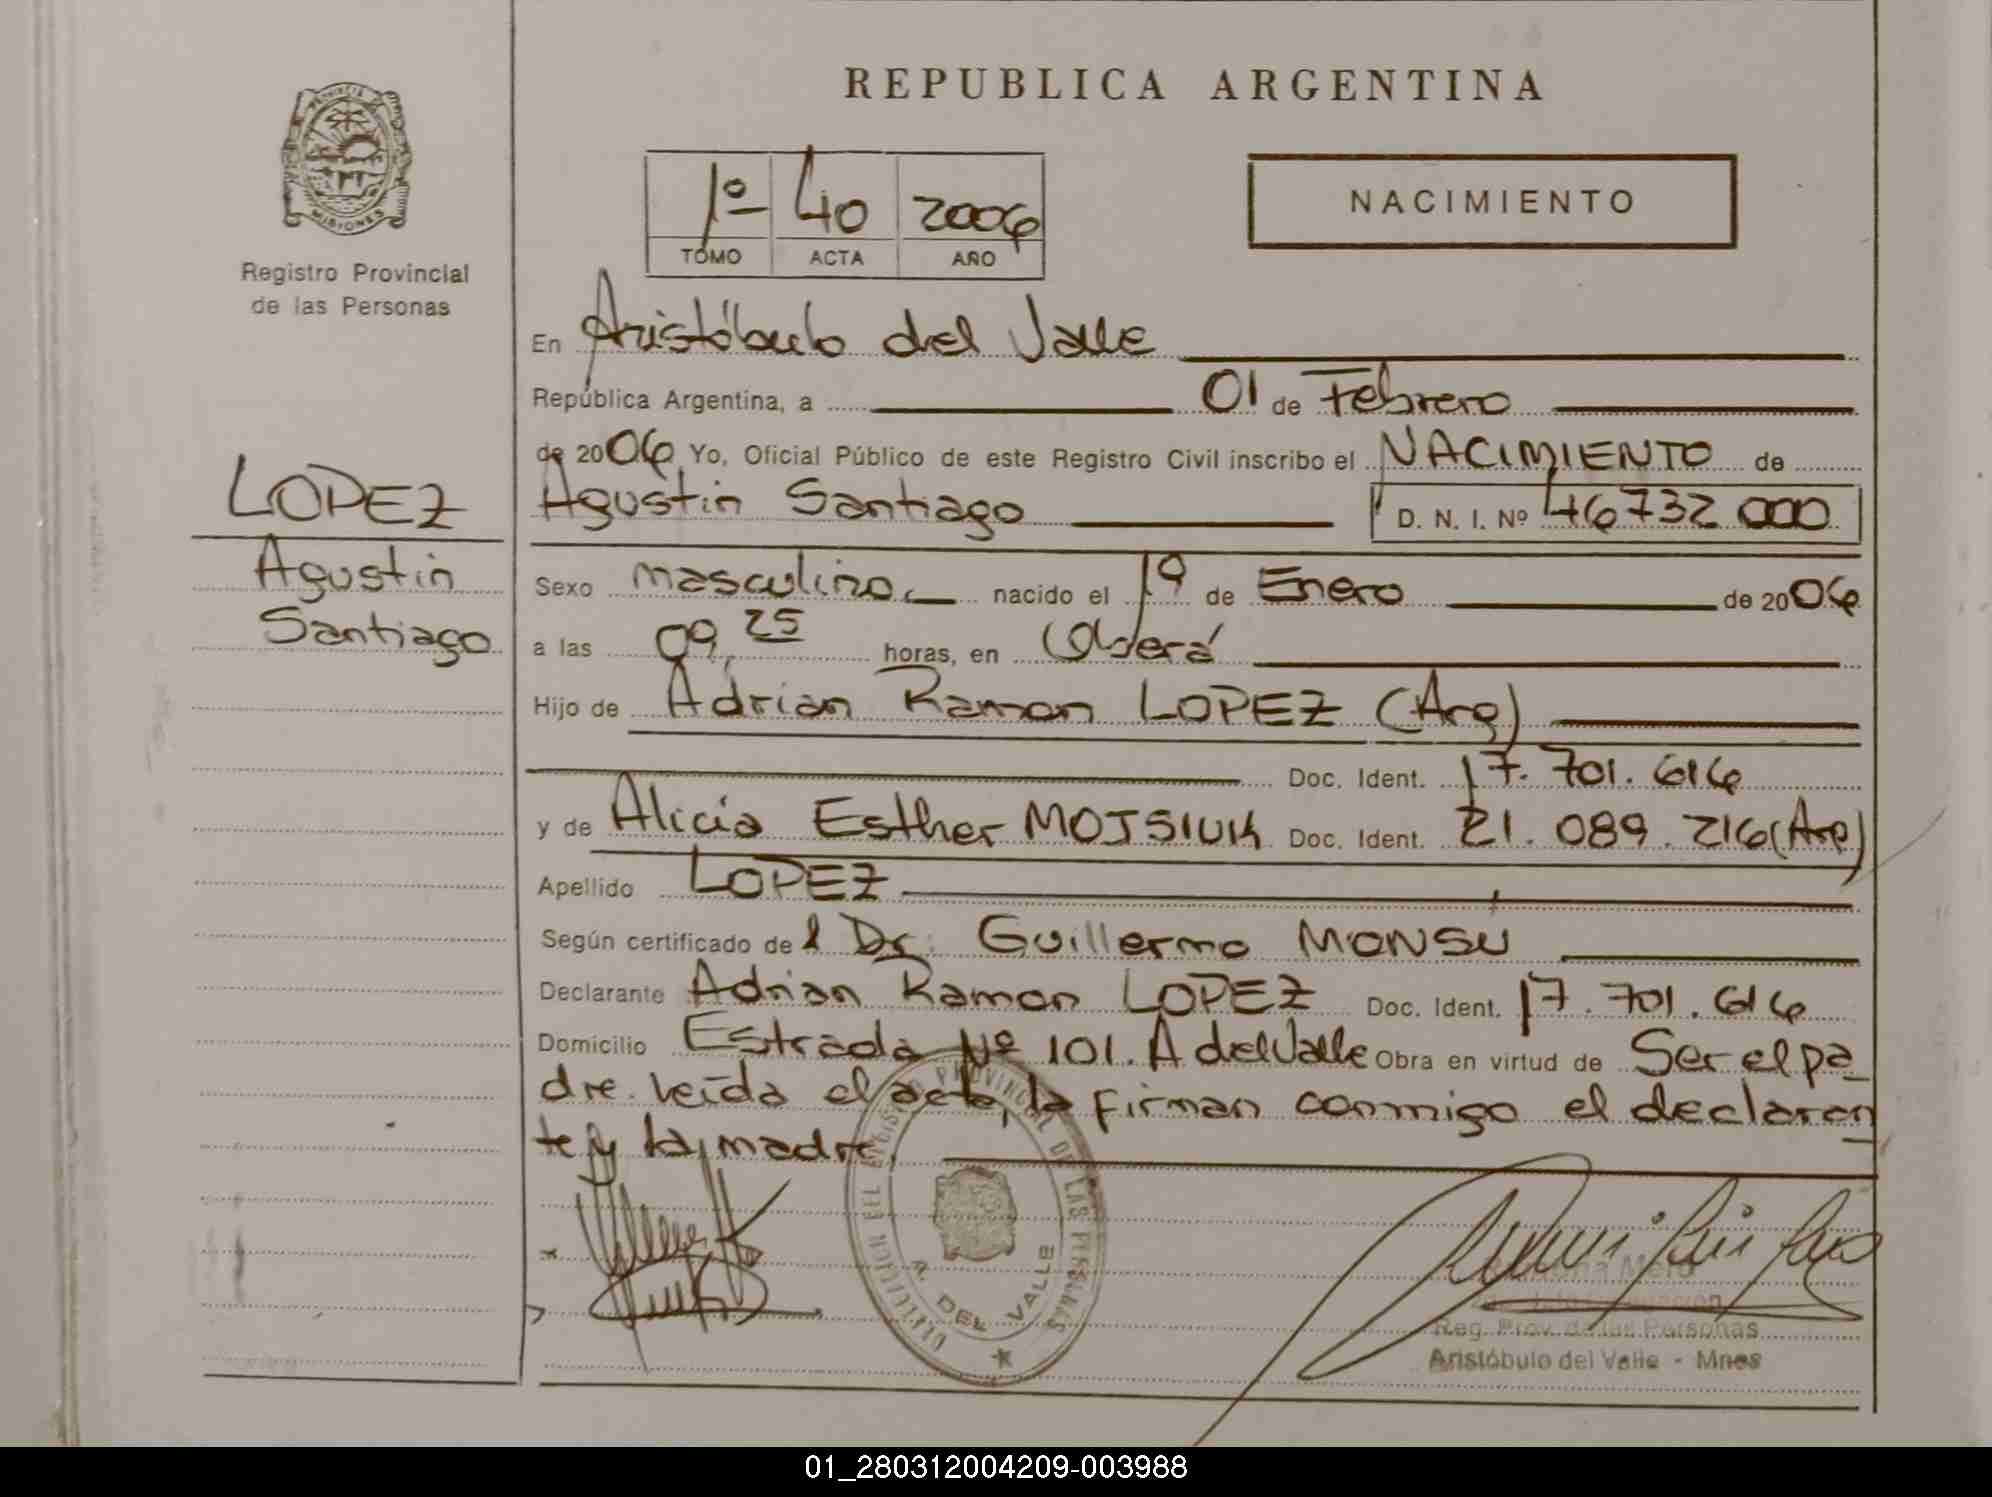 PROVINCIA
MISIONES
Registro Provincial
de las Personas
LOPEZ
Agustin
Santiago
REPUBLICA ARGENTINA
1º 40 2006
TOMO ACTA AÑO
NACIMIENTO
En Aristóbulo del Valle
República Argentina, a 01 de Febrero
de 2006 Yo, Oficial Público de este Registro Civil inscribo el NACIMIENTO de
Agustin Santiago D. N. I. Nº 46732000
Sexo masculino nacido el 1º de Enero de 2006
a las 09,25 horas, en Oberá
Hijo de Adrian Ramon LOPEZ (Arg)
Doc. Ident. 17.701.616
y de Alicia Esther MOJSIUK Doc. Ident. 21.089.216 (Arg)
Apellido LOPEZ
Según certificado del Dr. Guillermo MONSU
Declarante Adrian Ramon LOPEZ Doc. Ident. 17.701.616
Domicilio Estrada Nº 101. A del Valle Obra en virtud de Ser el pa
dre. Leída el acta, la firman conmigo el declaran
te y la madre.
DEL REGISTRO PROVINCIAL DE LAS PERSONAS
A. DEL VALLE
Reg. Prov. de las Personas
Aristóbulo del Valle - Mnes
01_280312004209-003988